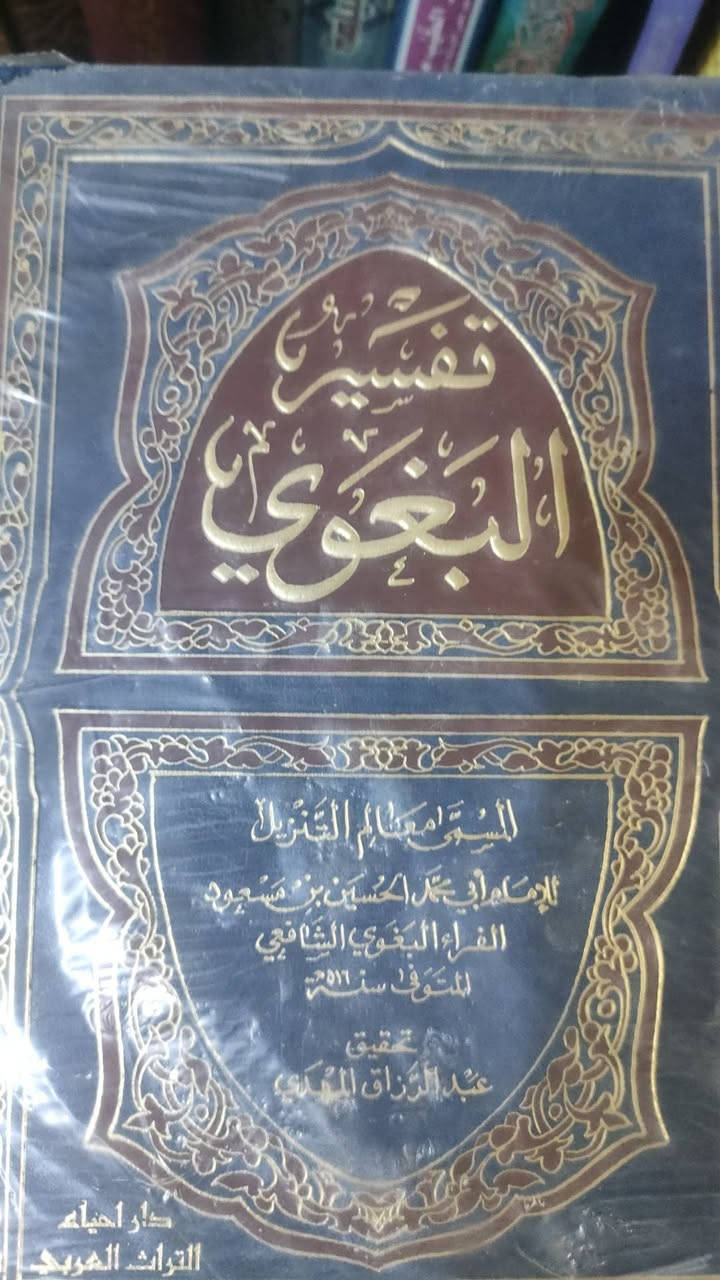 تفسير
البغوي
المسمى معالم التنزيل
للإمام أبي محمد الحسين بن مسعود
الفراء البغوي الشافعي
المتوفى سنة ٥١٦هـ
تحقيق
عبد الرزاق المهدي
دار احياء
التراث العربي